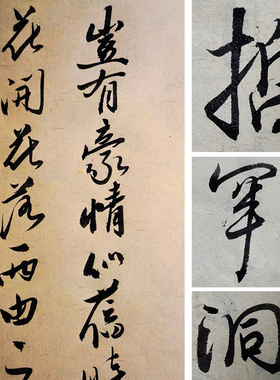 豈有豪情似舊時
花開花落兩由之
罕
洞